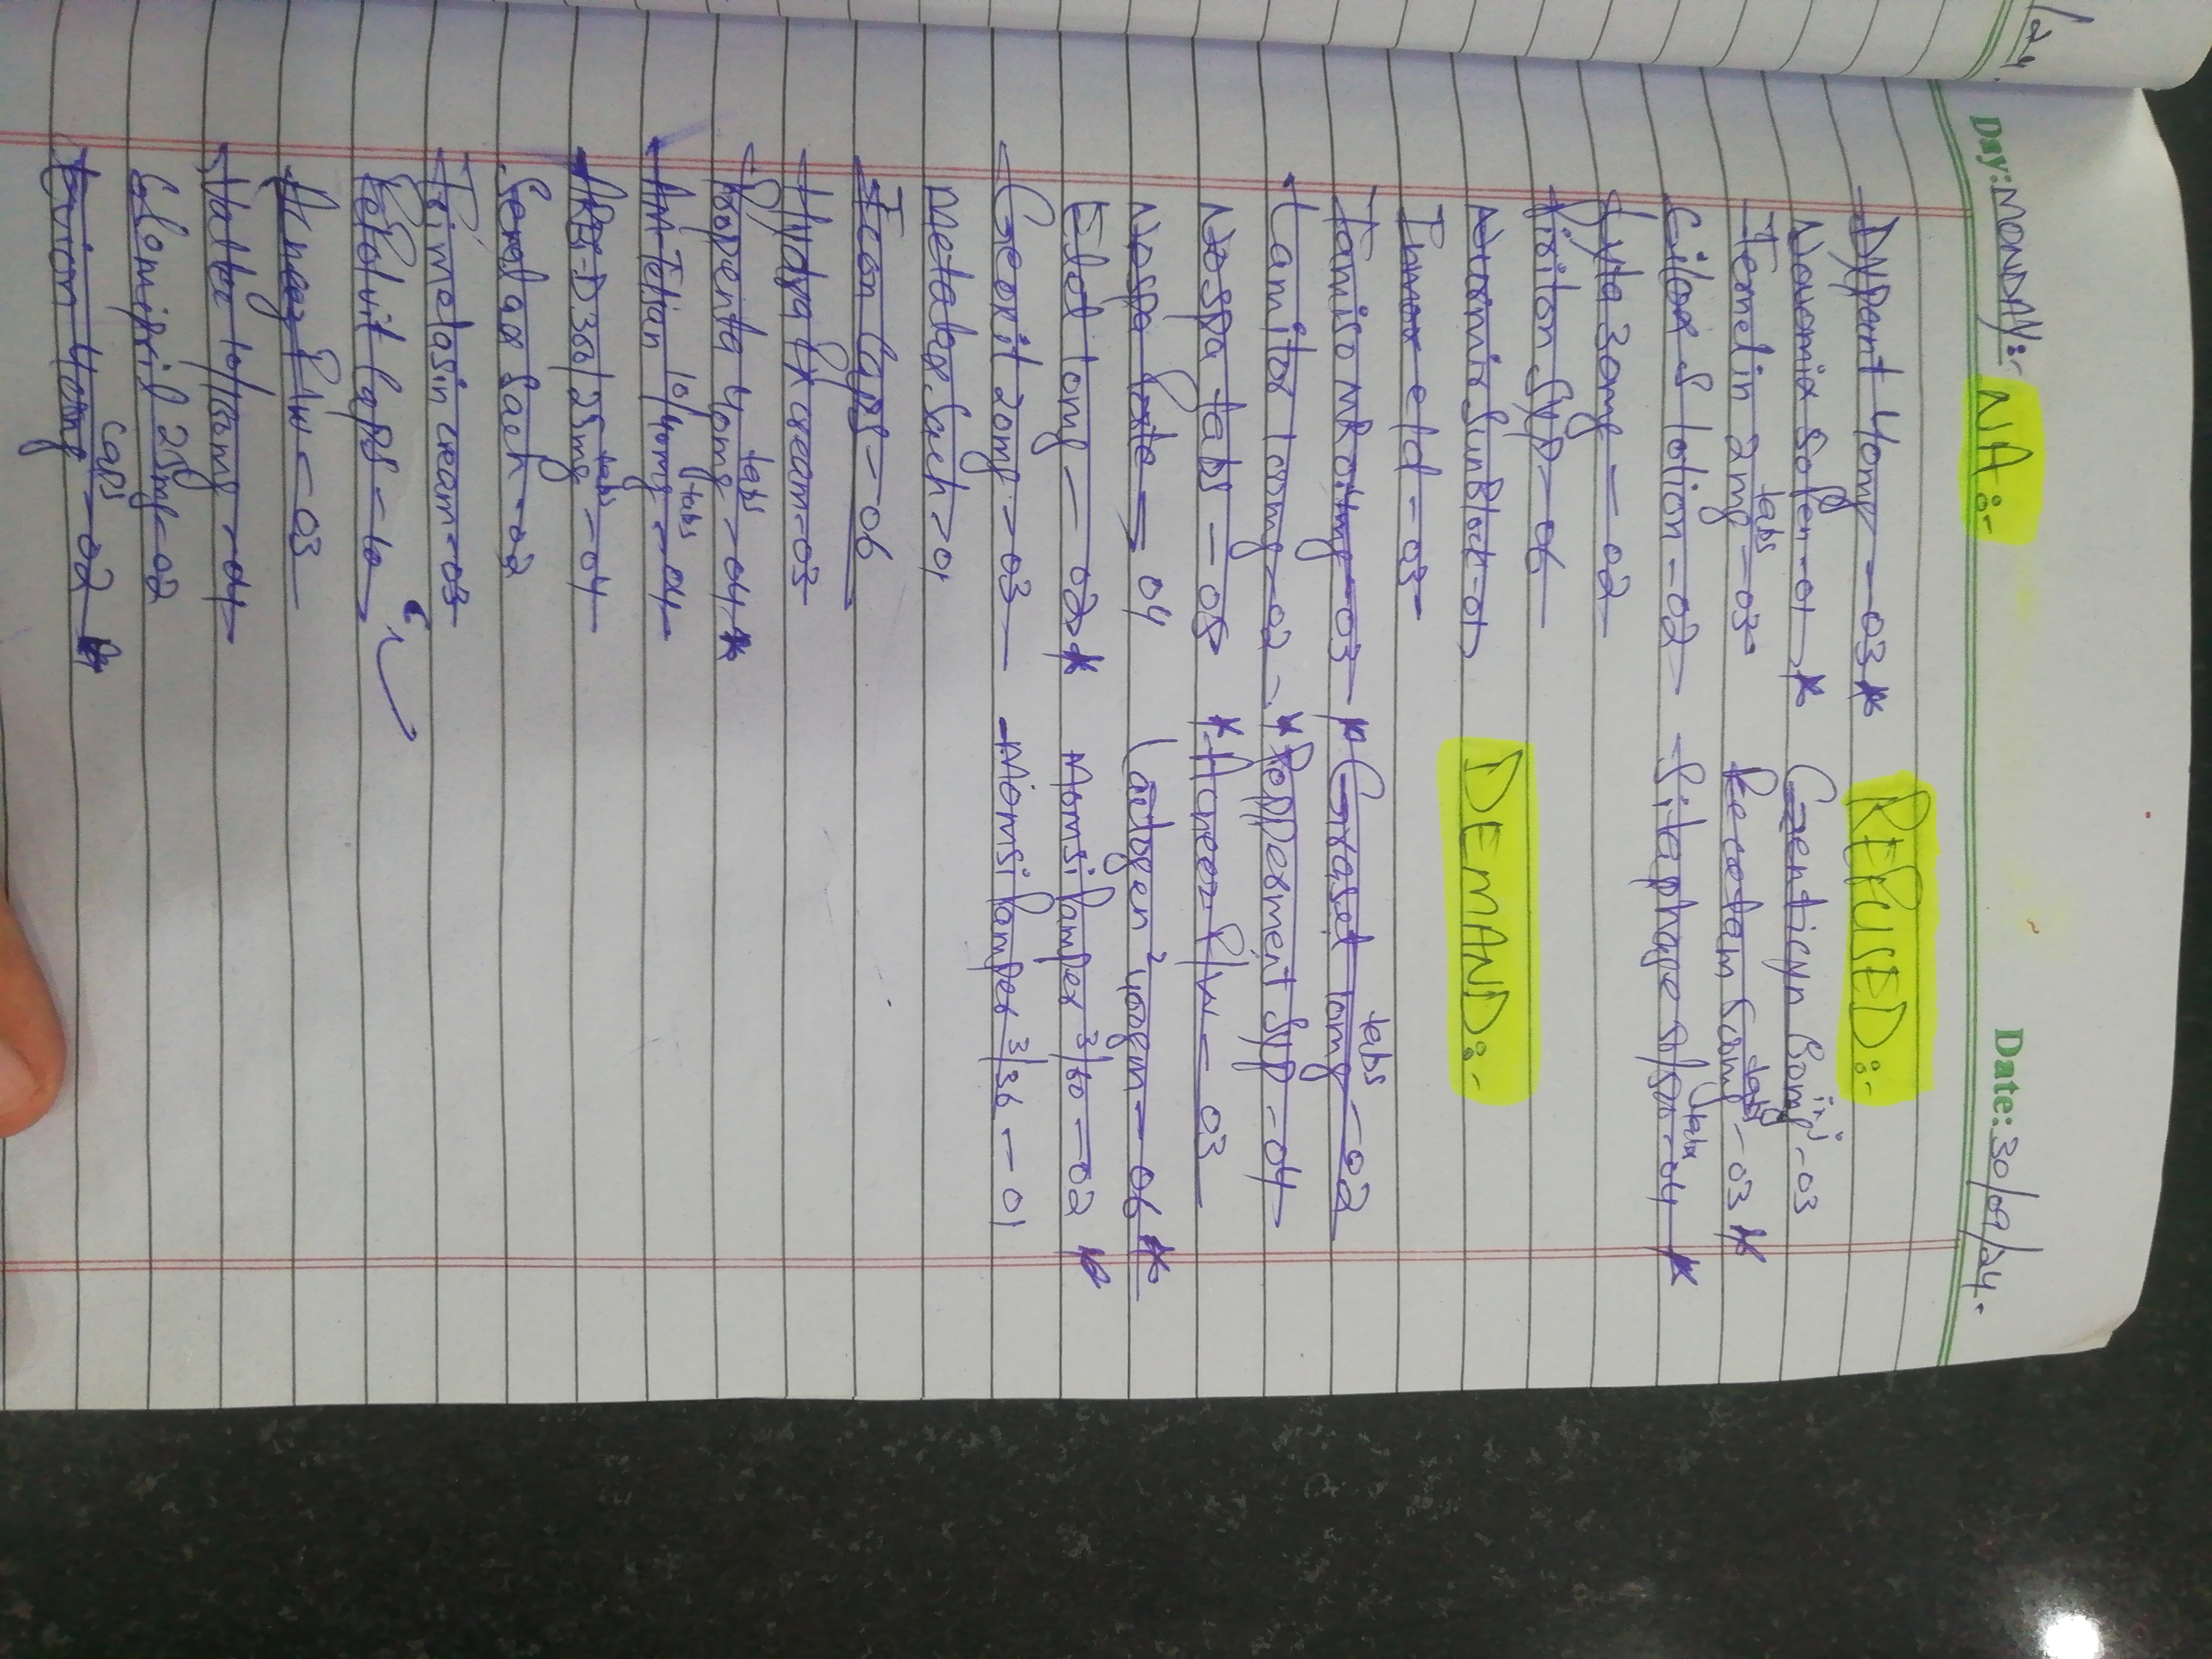 /24.
Day: MONDAY:- NA:- Date: 30/09/24.
Dypant 40mg - 03*
Nouomix Sofen - 01 *
Temelin 2mg tabs - 03
Cilax S lotion - 02
Zyla 30mg - 02
Visilon Syp - 06
Sunblock - 01
Inmox eld - 03
Tamiso MR 0.4mg - 03
Lamitor 10mg - 02
Nospa tabs - 08
Nospa forte - 04
Eslot 10mg - 02*
Gexit 20mg - 03
Metalax Sach - 01
Icon Caps - 06
Hydra fx cream - 03
Propenta 40mg tabs - 04*
Am-Telsan 10/40mg tabs - 04
ARB-D 300/25mg tabs - 04
Senelax Sach - 02
Trimelasin cream - 03
Caps - 10
F/W - 03
Valtec 10/160mg - 04
Clomipril 25mg - 02
40mg caps - 02 *
REFUSED:-
Genticyn 80mg inj - 03
tabs - 03 *
Sitaphage tabs - 04 *
DEMAND:-
* Graset 10mg tabs - 02
* Peppermint Syp - 04
* Acneez F/W - 03
Lactogen 2 400gm - 06 *
Momsi Pamper 3/60 - 02 *
Momsi Pamper 3/36 - 01